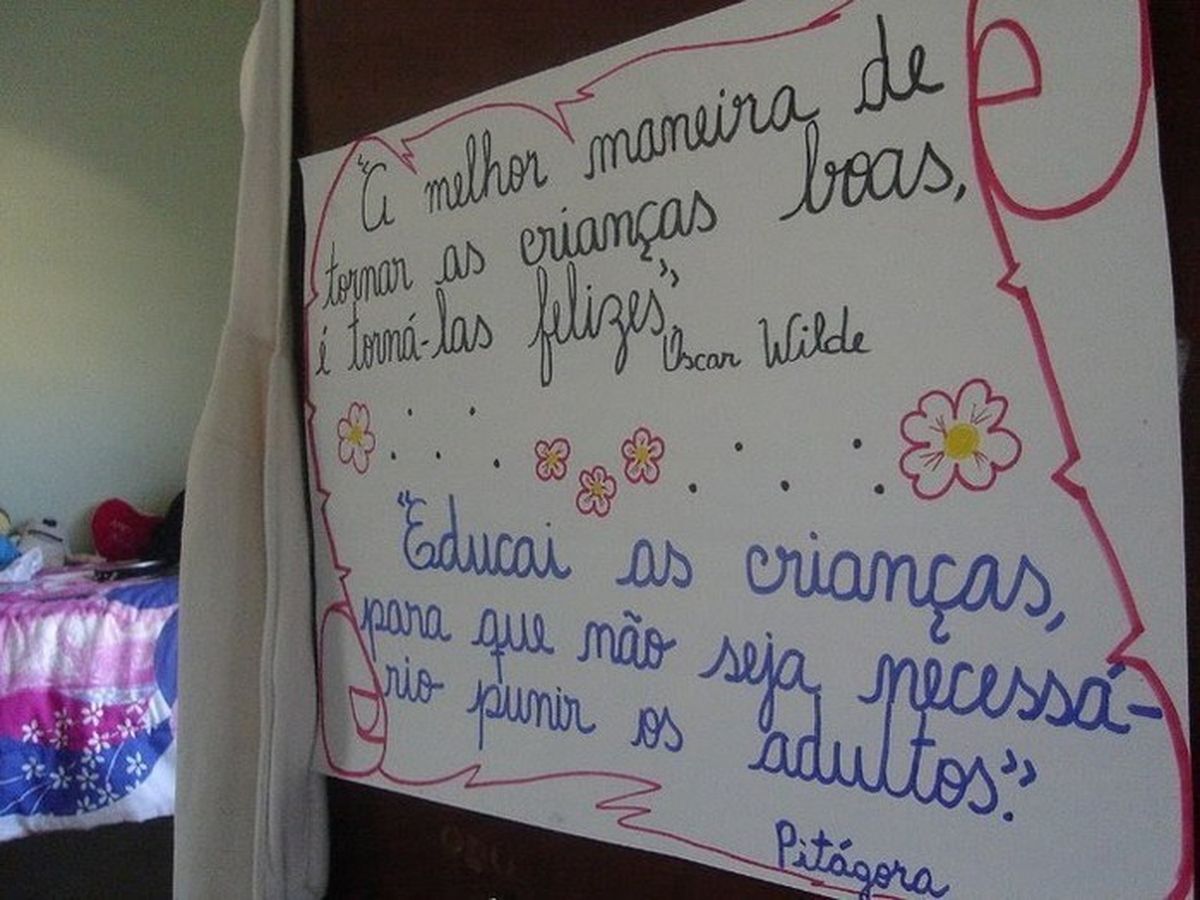 "A melhor maneira de
tornar as crianças boas,
é torná-las felizes".
Oscar Wilde
"Educai as crianças,
para que não seja necessá-
rio punir os adultos".
Pitágora